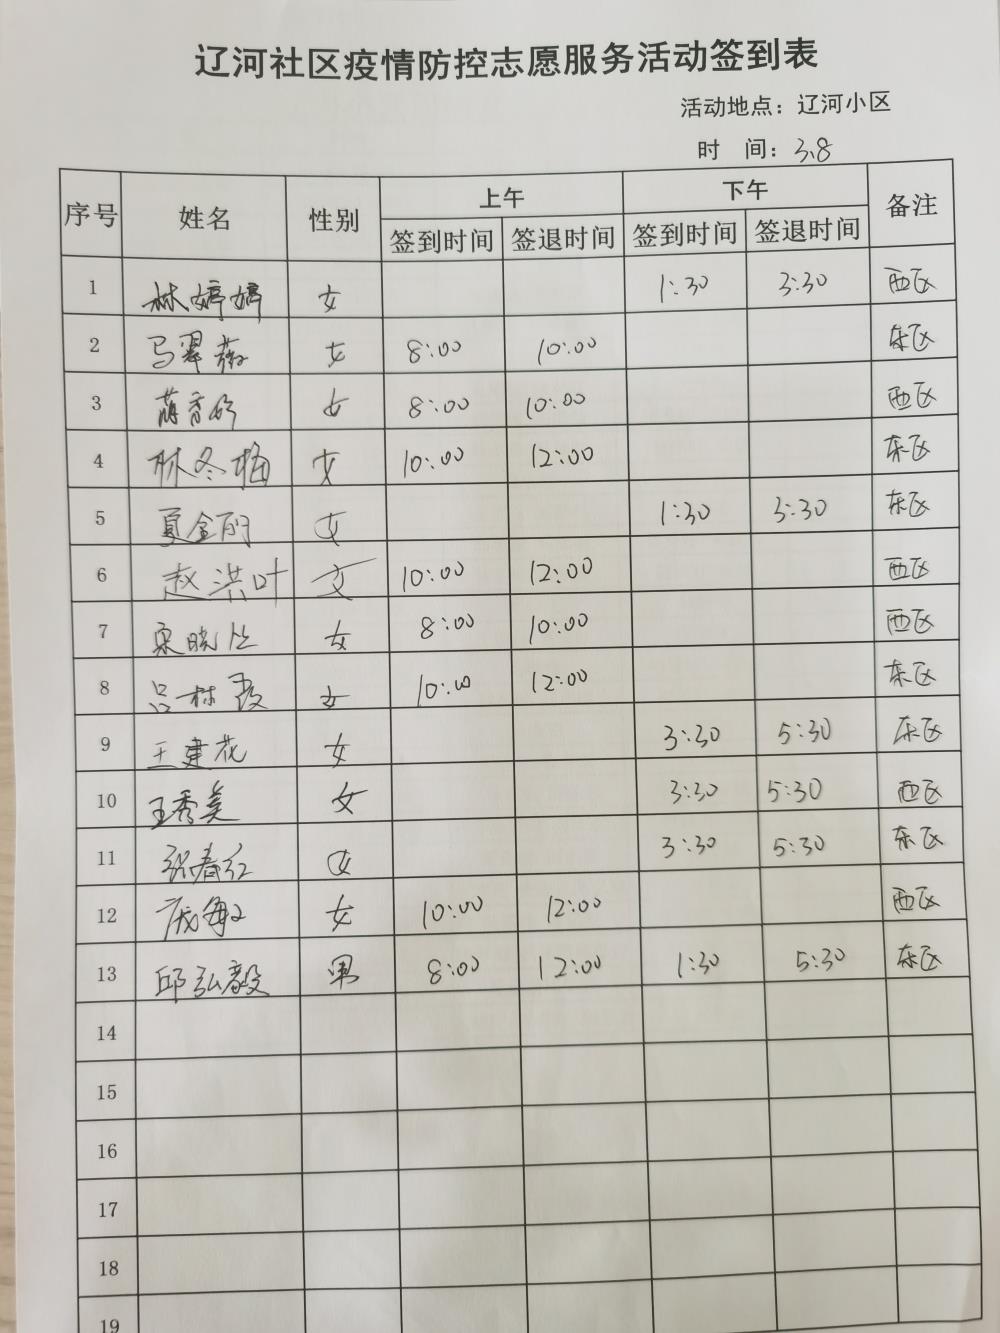 辽河社区疫情防控志愿服务活动签到表
活动地点：辽河小区
时 间：3.8
序号 姓名 性别 上午 下午 备注
签到时间 签退时间 签到时间 签退时间
1 林婷婷 女 1:30 3:30 西区
2 马翠薇 女 8:00 10:00 东区
3 女 8:00 10:00 西区
4 林冬梅 女 10:00 12:00 东区
5 夏金丽 女 1:30 3:30 东区
6 赵洪叶 女 10:00 12:00 西区
7 晓 女 8:00 10:00 西区
8 吕林霞 女 10:00 12:00 东区
9 王建花 女 3:30 5:30 东区
10 王秀美 女 3:30 5:30 西区
11 张春红 女 3:30 5:30 东区
12 女 10:00 12:00 西区
13 邱弘毅 男 8:00 12:00 1:30 5:30 东区
14
15
16
17
18
19